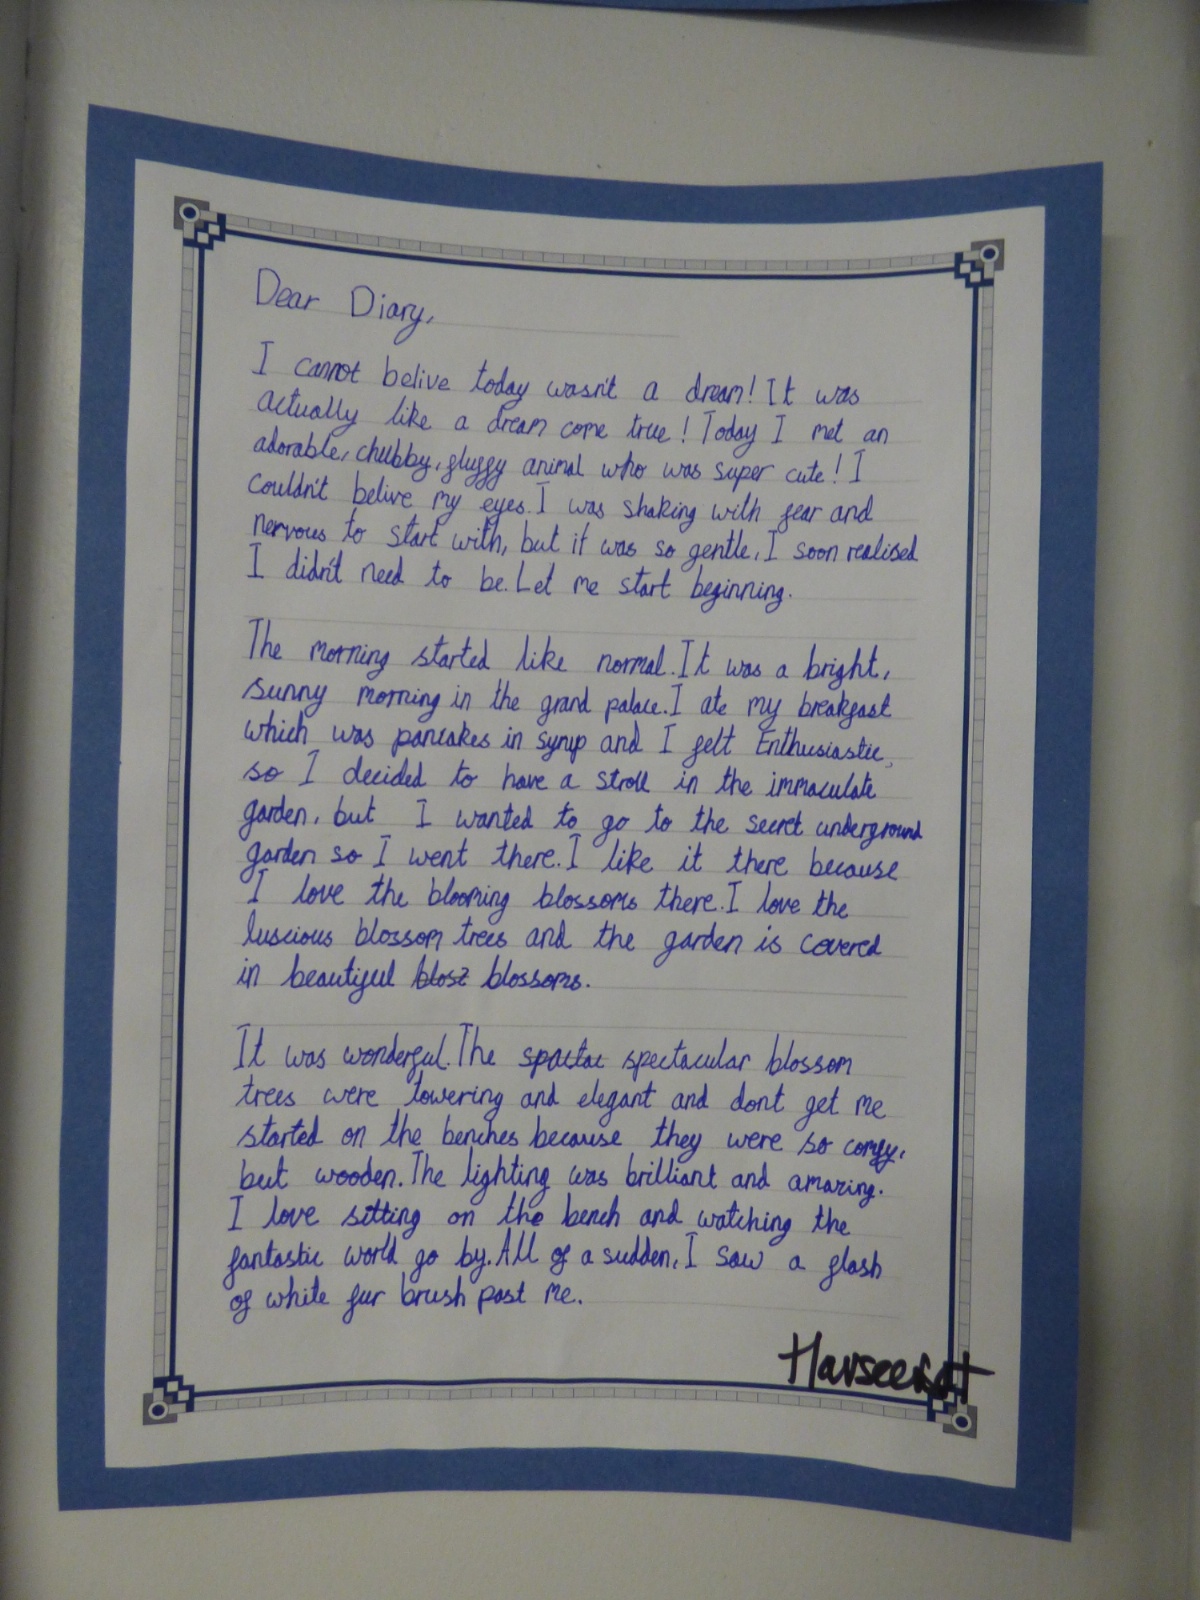 Dear Diary,
I cannot belive today wasn't a dream! It was
actually like a dream come true! Today I met an
adorable, chubby, fluffy animal who was super cute! I
couldn't belive my eyes. I was shaking with fear and
nervous to start with, but it was so gentle, I soon realised
I didn't need to be. Let me start beginning.
The morning started like normal. It was a bright,
sunny morning in the grand palace. I ate my breakfast
which was pancakes in syrup and I felt Enthusiastic,
so I decided to have a stroll in the immaculate
garden, but I wanted to go to the secret underground
garden so I went there. I like it there because
I love the blooming blossoms there. I love the
luscious blossom trees and the garden is covered
in beautiful blossoms.
It was wonderful. The spectacular blossom
trees were towering and elegant and dont get me
started on the benches because they were so comfy,
but wooden. The lighting was brilliant and amazing.
I love sitting on the bench and watching the
fantastic world go by. All of a sudden, I saw a flash
of white fur brush past me.